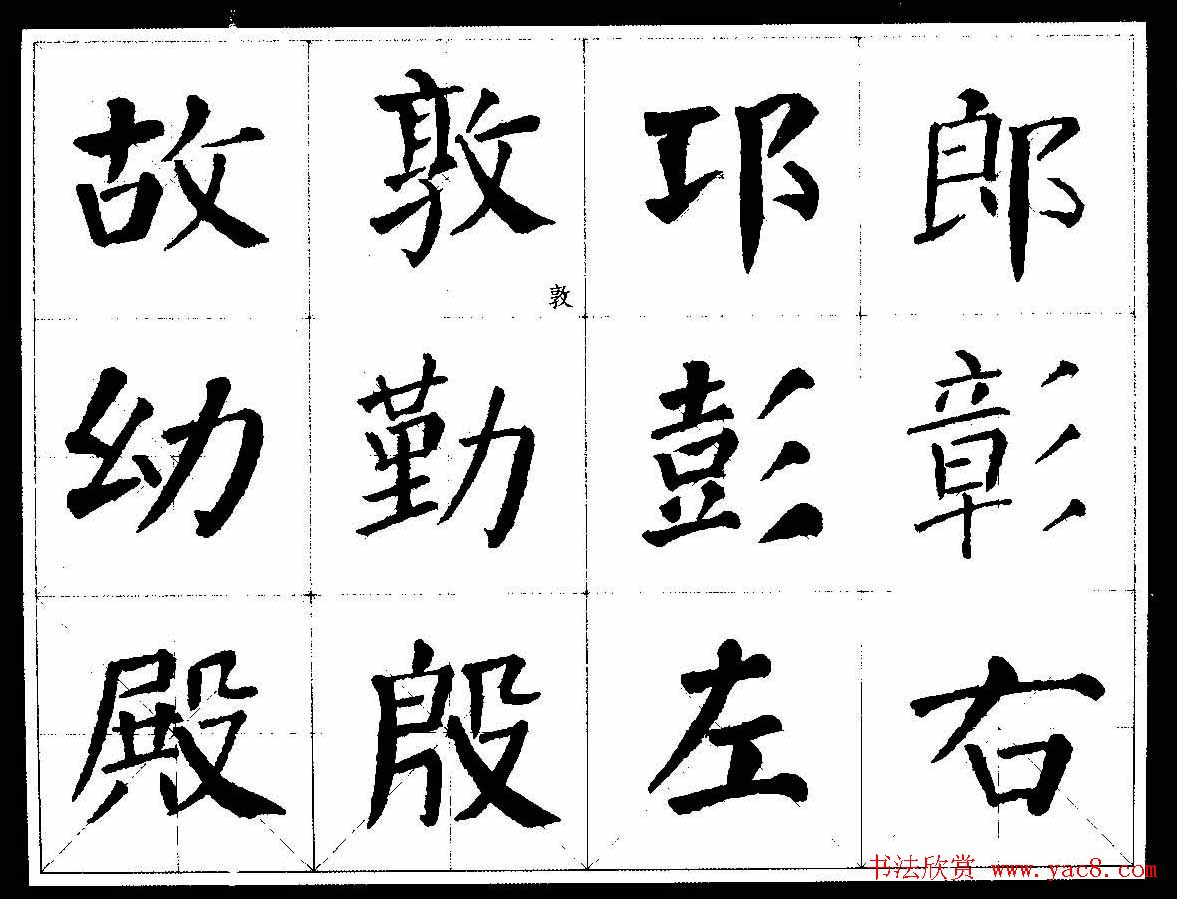 故敦邛郎
敦
幼勤彭彰
殿殷左右
书法欣赏 www.yac8.com